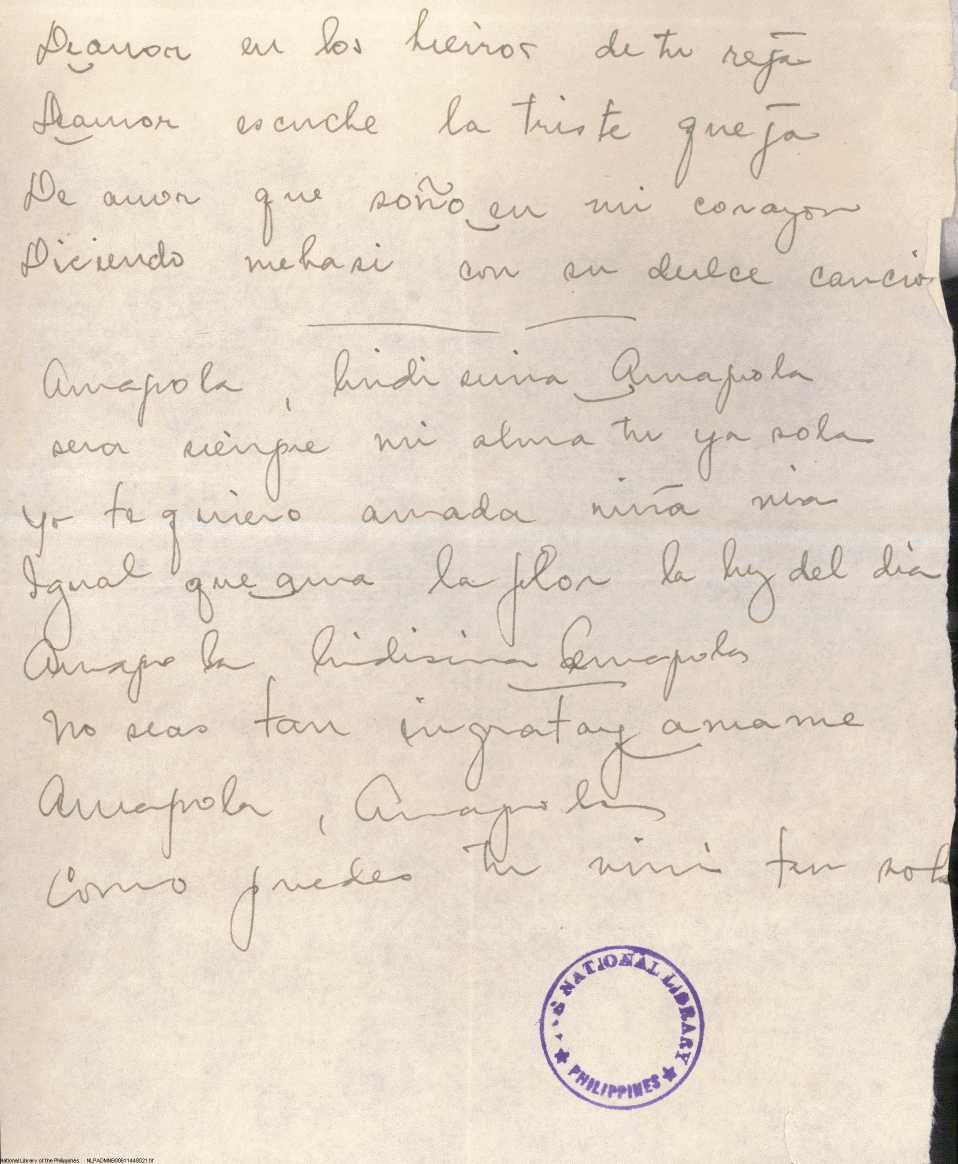 De amor en los hierros de tu reja
De amor escuche la triste queja
De amor que soño en mi corazon
Diciendo mehasi con su dulce cancio
Amapola, lindisima Amapola
sera siempre mi alma tu ya sola
yo te quiero amada niña mia
Igual que ama la flor la luz del dia
Amapola lindisima Amapola
no seas tan ingrata y amame
Amapola, Amapola
Como puedes tu vivir tan sola
NATIONAL LIBRARY
PHILIPPINES
National Library of the Philippines